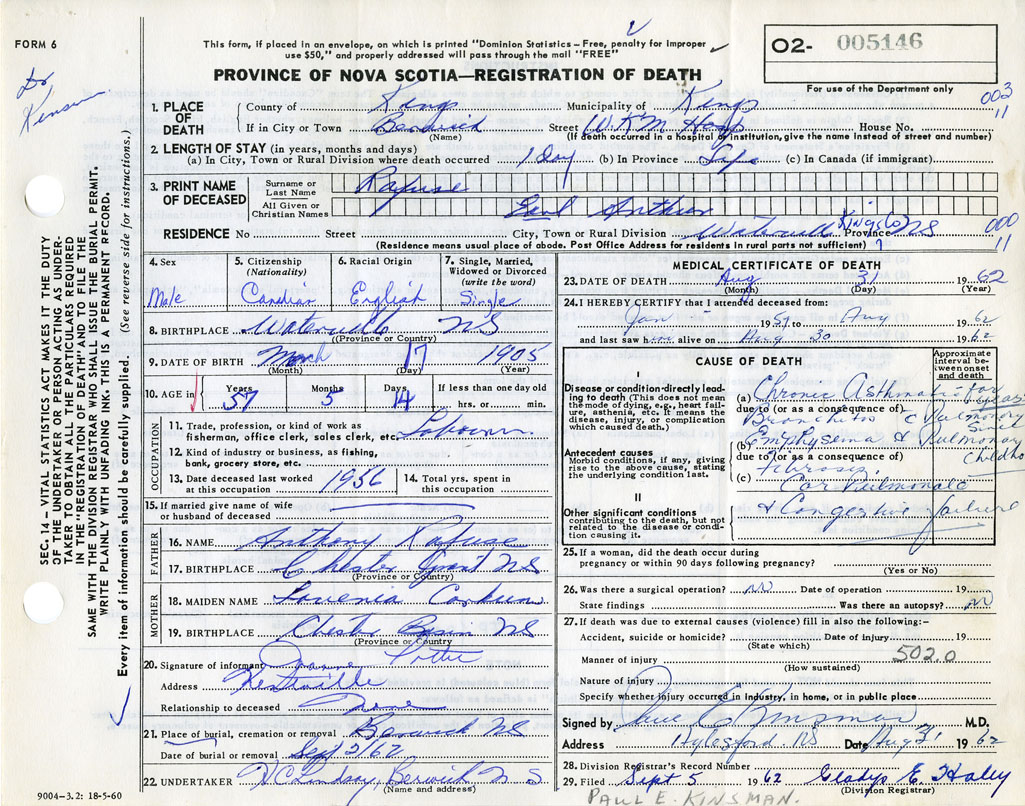 FORM 6
This form, if placed in an envelope, on which is printed "Dominion Statistics – Free, penalty for improper
use $50," and properly addressed will pass through the mail "FREE"
O2- 005146
For use of the Department only
Dr Kinsman
PROVINCE OF NOVA SCOTIA—REGISTRATION OF DEATH
003
11
1. PLACE OF DEATH
County of Kings Municipality of Kings
If in City or Town Berwick Street W.K.M Hosp House No.
(If death occurred in a hospital or institution, give the name instead of street and number)
2. LENGTH OF STAY (in years, months and days)
(a) In City, Town or Rural Division where death occurred 1 day (b) In Province Life (c) In Canada (if immigrant)
3. PRINT NAME OF DECEASED
Surname or Last Name Rafuse
All Given or Christian Names Earl Anthony
RESIDENCE No Street City, Town or Rural Division Waterville Kings Co Province NS
(Residence means usual place of abode. Post Office Address for residents in rural parts not sufficient)
000
11
4. Sex Male
5. Citizenship (Nationality) Candian
6. Racial Origin English
7. Single, Married, Widowed or Divorced (write the word) Single
8. BIRTHPLACE Waterville NS
(Province or Country)
9. DATE OF BIRTH March 17 1905
(Month) (Day) (Year)
10. AGE in Years 57 Months 5 Days 14 If less than one day old
hrs. or min.
OCCUPATION
11. Trade, profession, or kind of work as
fisherman, office clerk, sales clerk, etc.
12. Kind of industry or business, as fishing,
bank, grocery store, etc.
13. Date deceased last worked at this occupation 1956
14. Total yrs. spent in this occupation
15. If married give name of wife
or husband of deceased
FATHER
16. NAME Anthony Rafuse
17. BIRTHPLACE Chester Grant NS
(Province or Country)
MOTHER
18. MAIDEN NAME Lovenia Corkum
19. BIRTHPLACE Chester Basin NS
(Province or Country)
20. Signature of informant Potter
Address Kentville
Relationship to deceased None
21. Place of burial, cremation or removal Berwick NS
Date of burial or removal Sept 2/62
22. UNDERTAKER H C Lindsay, Berwick N.S.
(Name and address)
9004-3.2: 18-5-60
MEDICAL CERTIFICATE OF DEATH
23. DATE OF DEATH Aug 31 1962
(Month) (Day) (Year)
24. I HEREBY CERTIFY that I attended deceased from:
Jan 19 51 to Aug 1962
and last saw him alive on Aug 30 1962
CAUSE OF DEATH
Approximate interval between onset and death
I
Disease or condition directly leading to death (This does not
mean the mode of dying, e.g., heart failure,
asthenia, etc. It means the
disease, injury, or complication
which caused death.)
(a) Chronic Asthmatic
due to (or as a consequence of)
Bronchitis c Pulmonary
Antecedent causes
Morbid conditions, if any, giving
rise to the above cause, stating
the underlying condition last.
(b) Emphysema & Pulmonary
due to (or as a consequence of)
Fibrosis.
(c) Cor Pulmonale
II
Other significant conditions
contributing to the death, but not
related to the disease or condition
causing it.
& Congestive failure
25. If a woman, did the death occur during
pregnancy or within 90 days following pregnancy?
(Yes or No)
26. Was there a surgical operation? no Date of operation 19
State findings Was there an autopsy? no
27. If death was due to external causes (violence) fill in also the following:-
Accident, suicide or homicide? Date of injury 19
(State which)
Manner of injury 502.0
(How sustained)
Nature of injury
Specify whether injury occurred in industry, in home, or in public place
Signed by Paul E Kinsman M.D.
Address Aylesford. NS Date Aug 31 1962
28. Division Registrar's Record Number
29. Filed Sept 5 1962 Gladys E. Haley
(Division Registrar)
PAUL E. KINSMAN.
SEC. 14 – VITAL STATISTICS ACT MAKES IT THE DUTY
OF THE UNDERTAKER OR PERSON ACTING AS UNDER-
TAKER TO OBTAIN ALL THE PARTICULARS REQUIRED
IN THE "REGISTRATION OF DEATH" AND TO FILE THE
SAME WITH THE DIVISION REGISTRAR WHO SHALL ISSUE THE BURIAL PERMIT.
WRITE PLAINLY WITH UNFADING INK. THIS IS A PERMANENT RECORD.
Every item of information should be carefully supplied (See reverse side for instructions.)